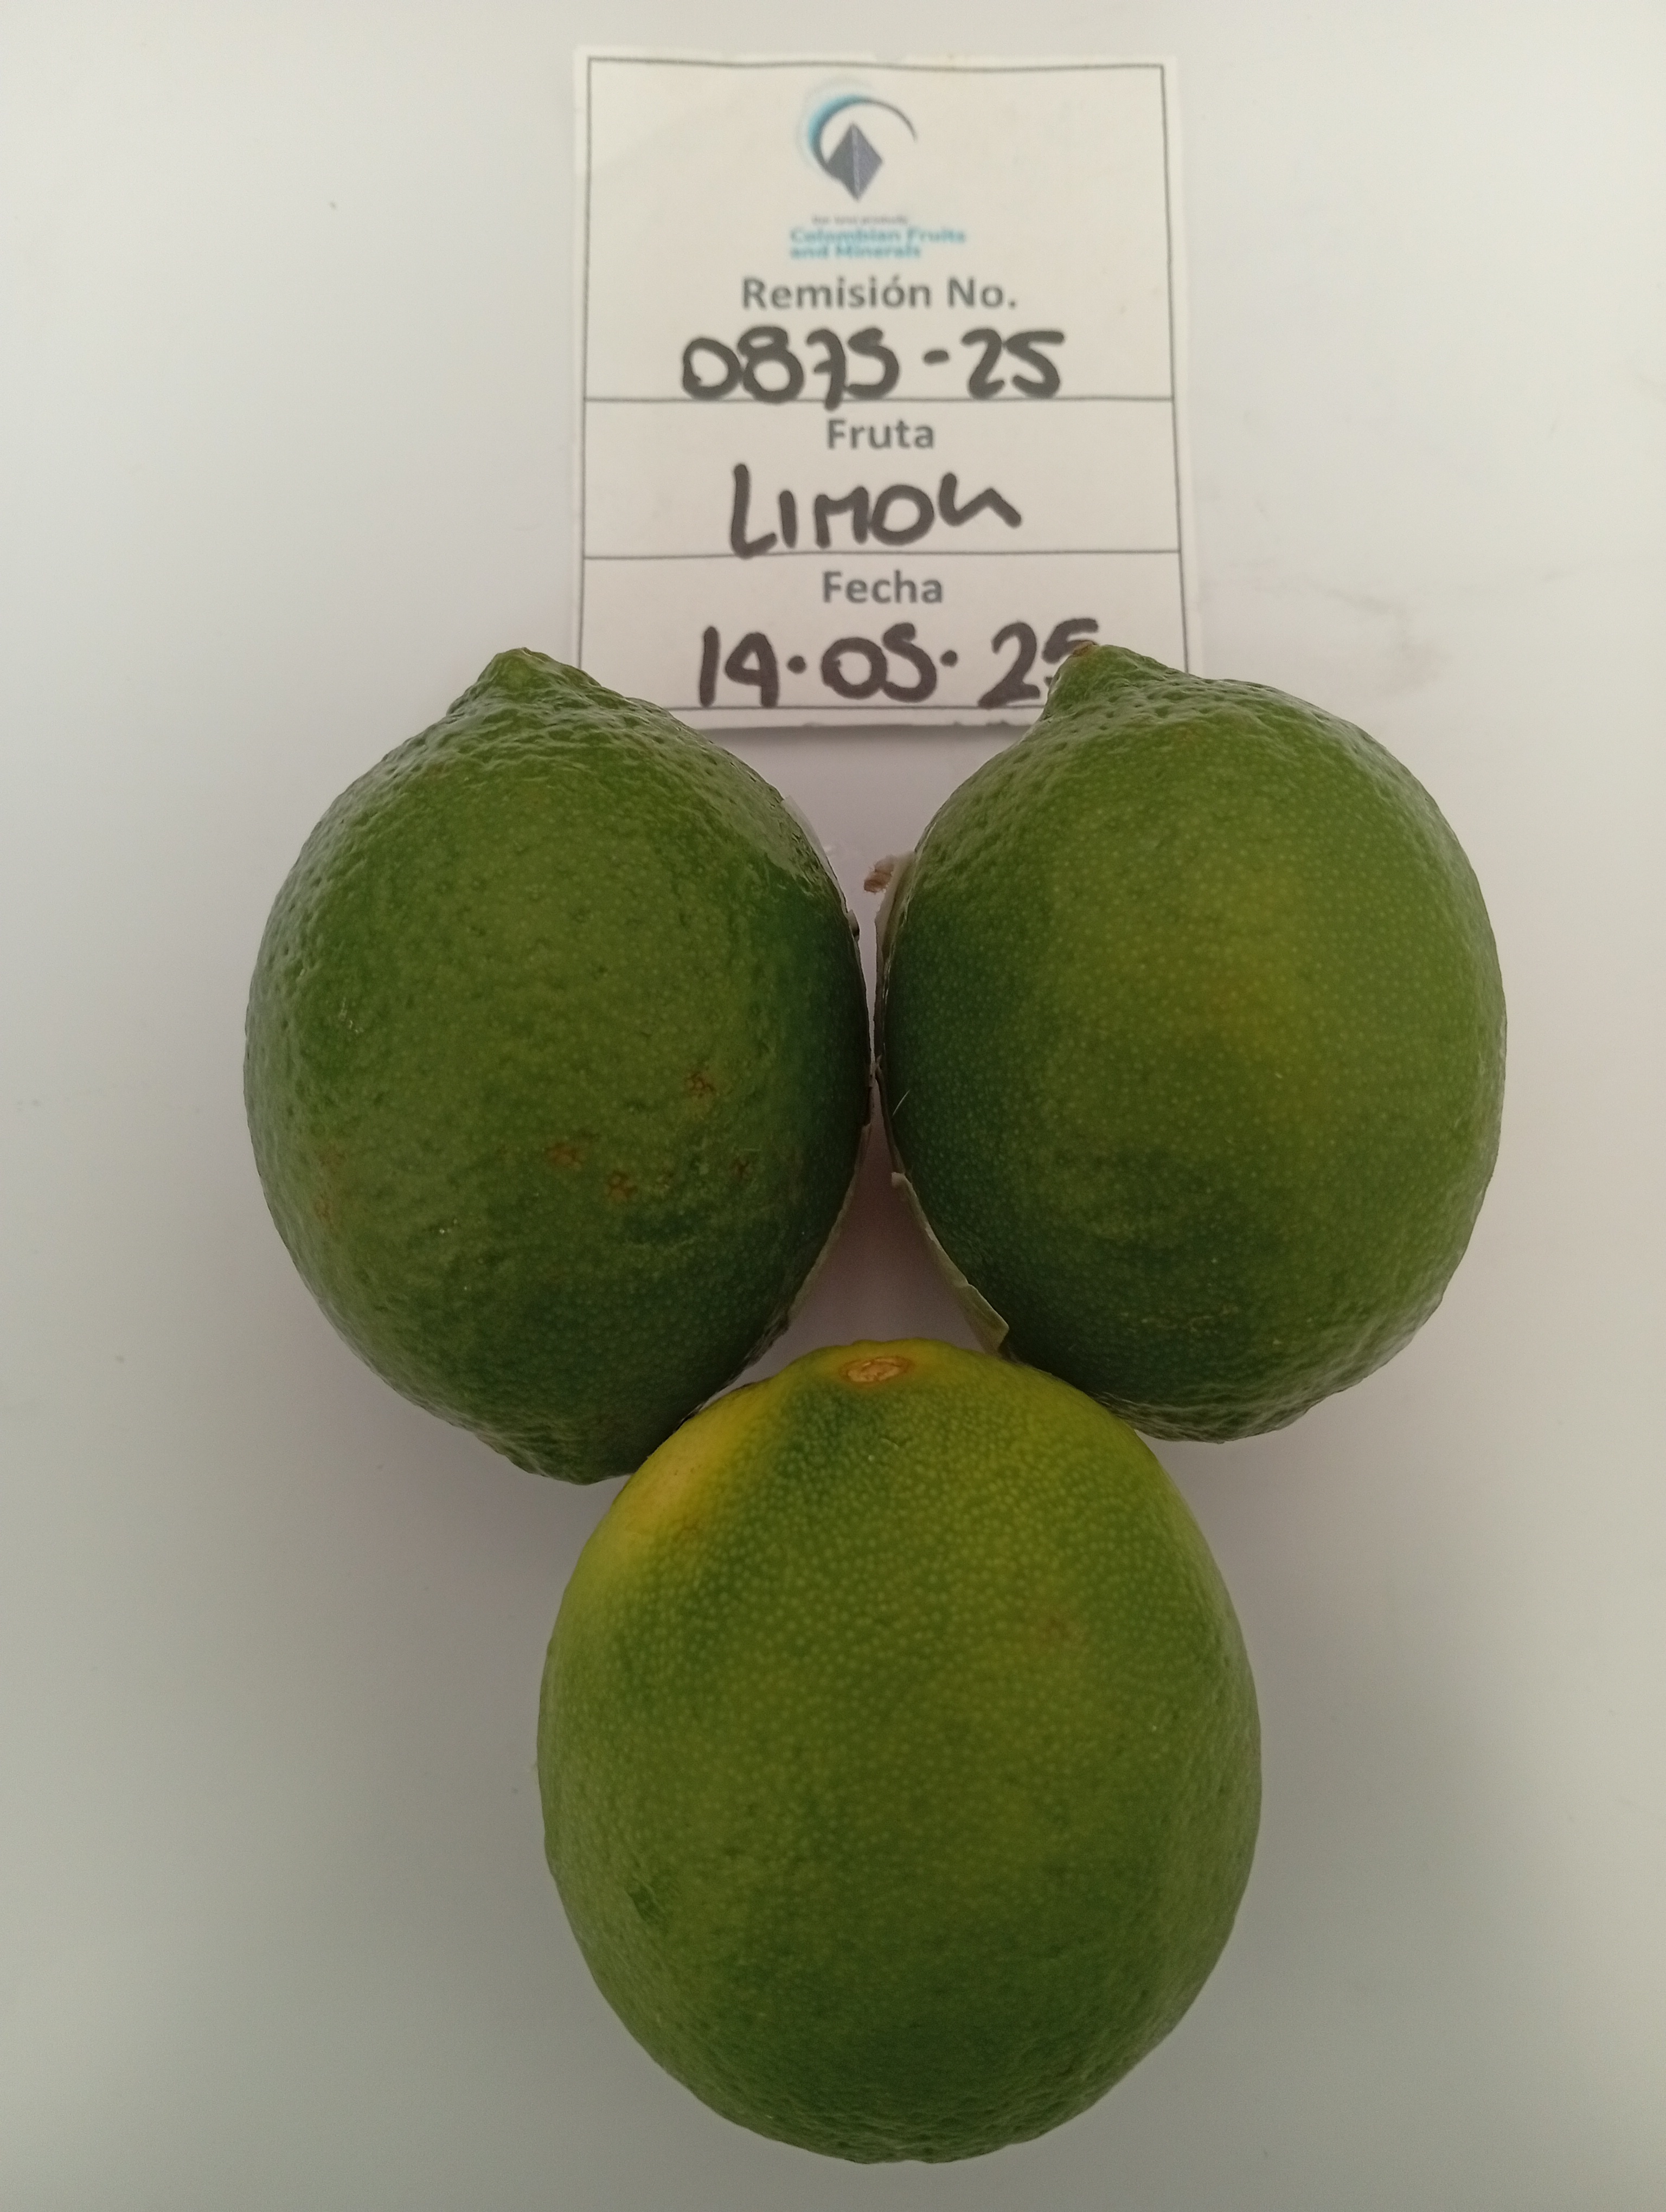 Colombian Fruits
and Minerals
Remisión No.
0875-25
Fruta
LIMON
Fecha
14.05.25